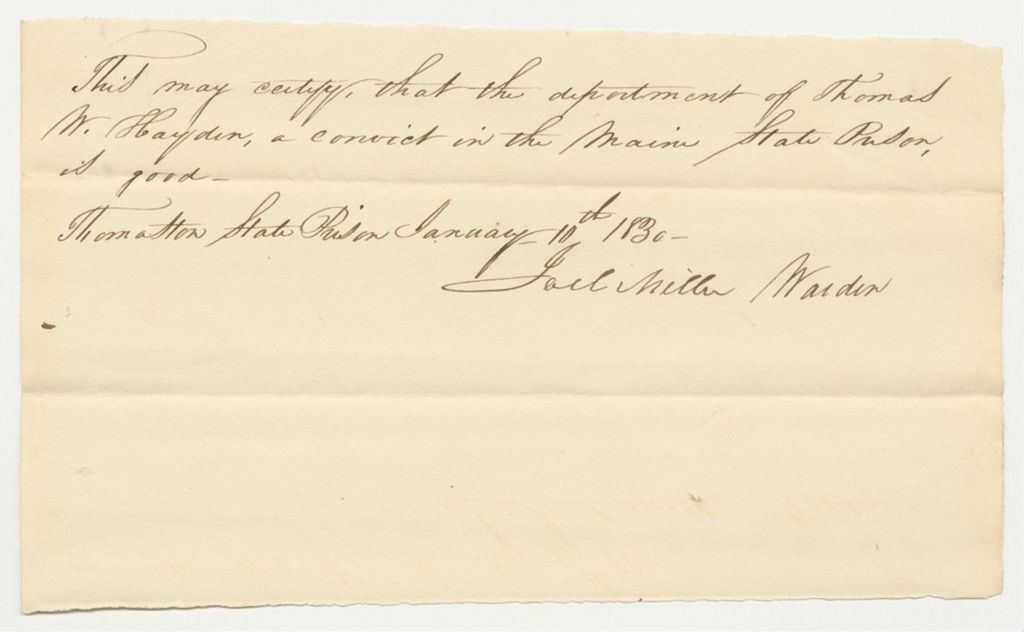 This may certify, that the deportment of Thomas
W. Hayden, a convict in the Maine State Prison,
is good—
Thomaston State Prison January 10th 1830—
Joel Miller Warden